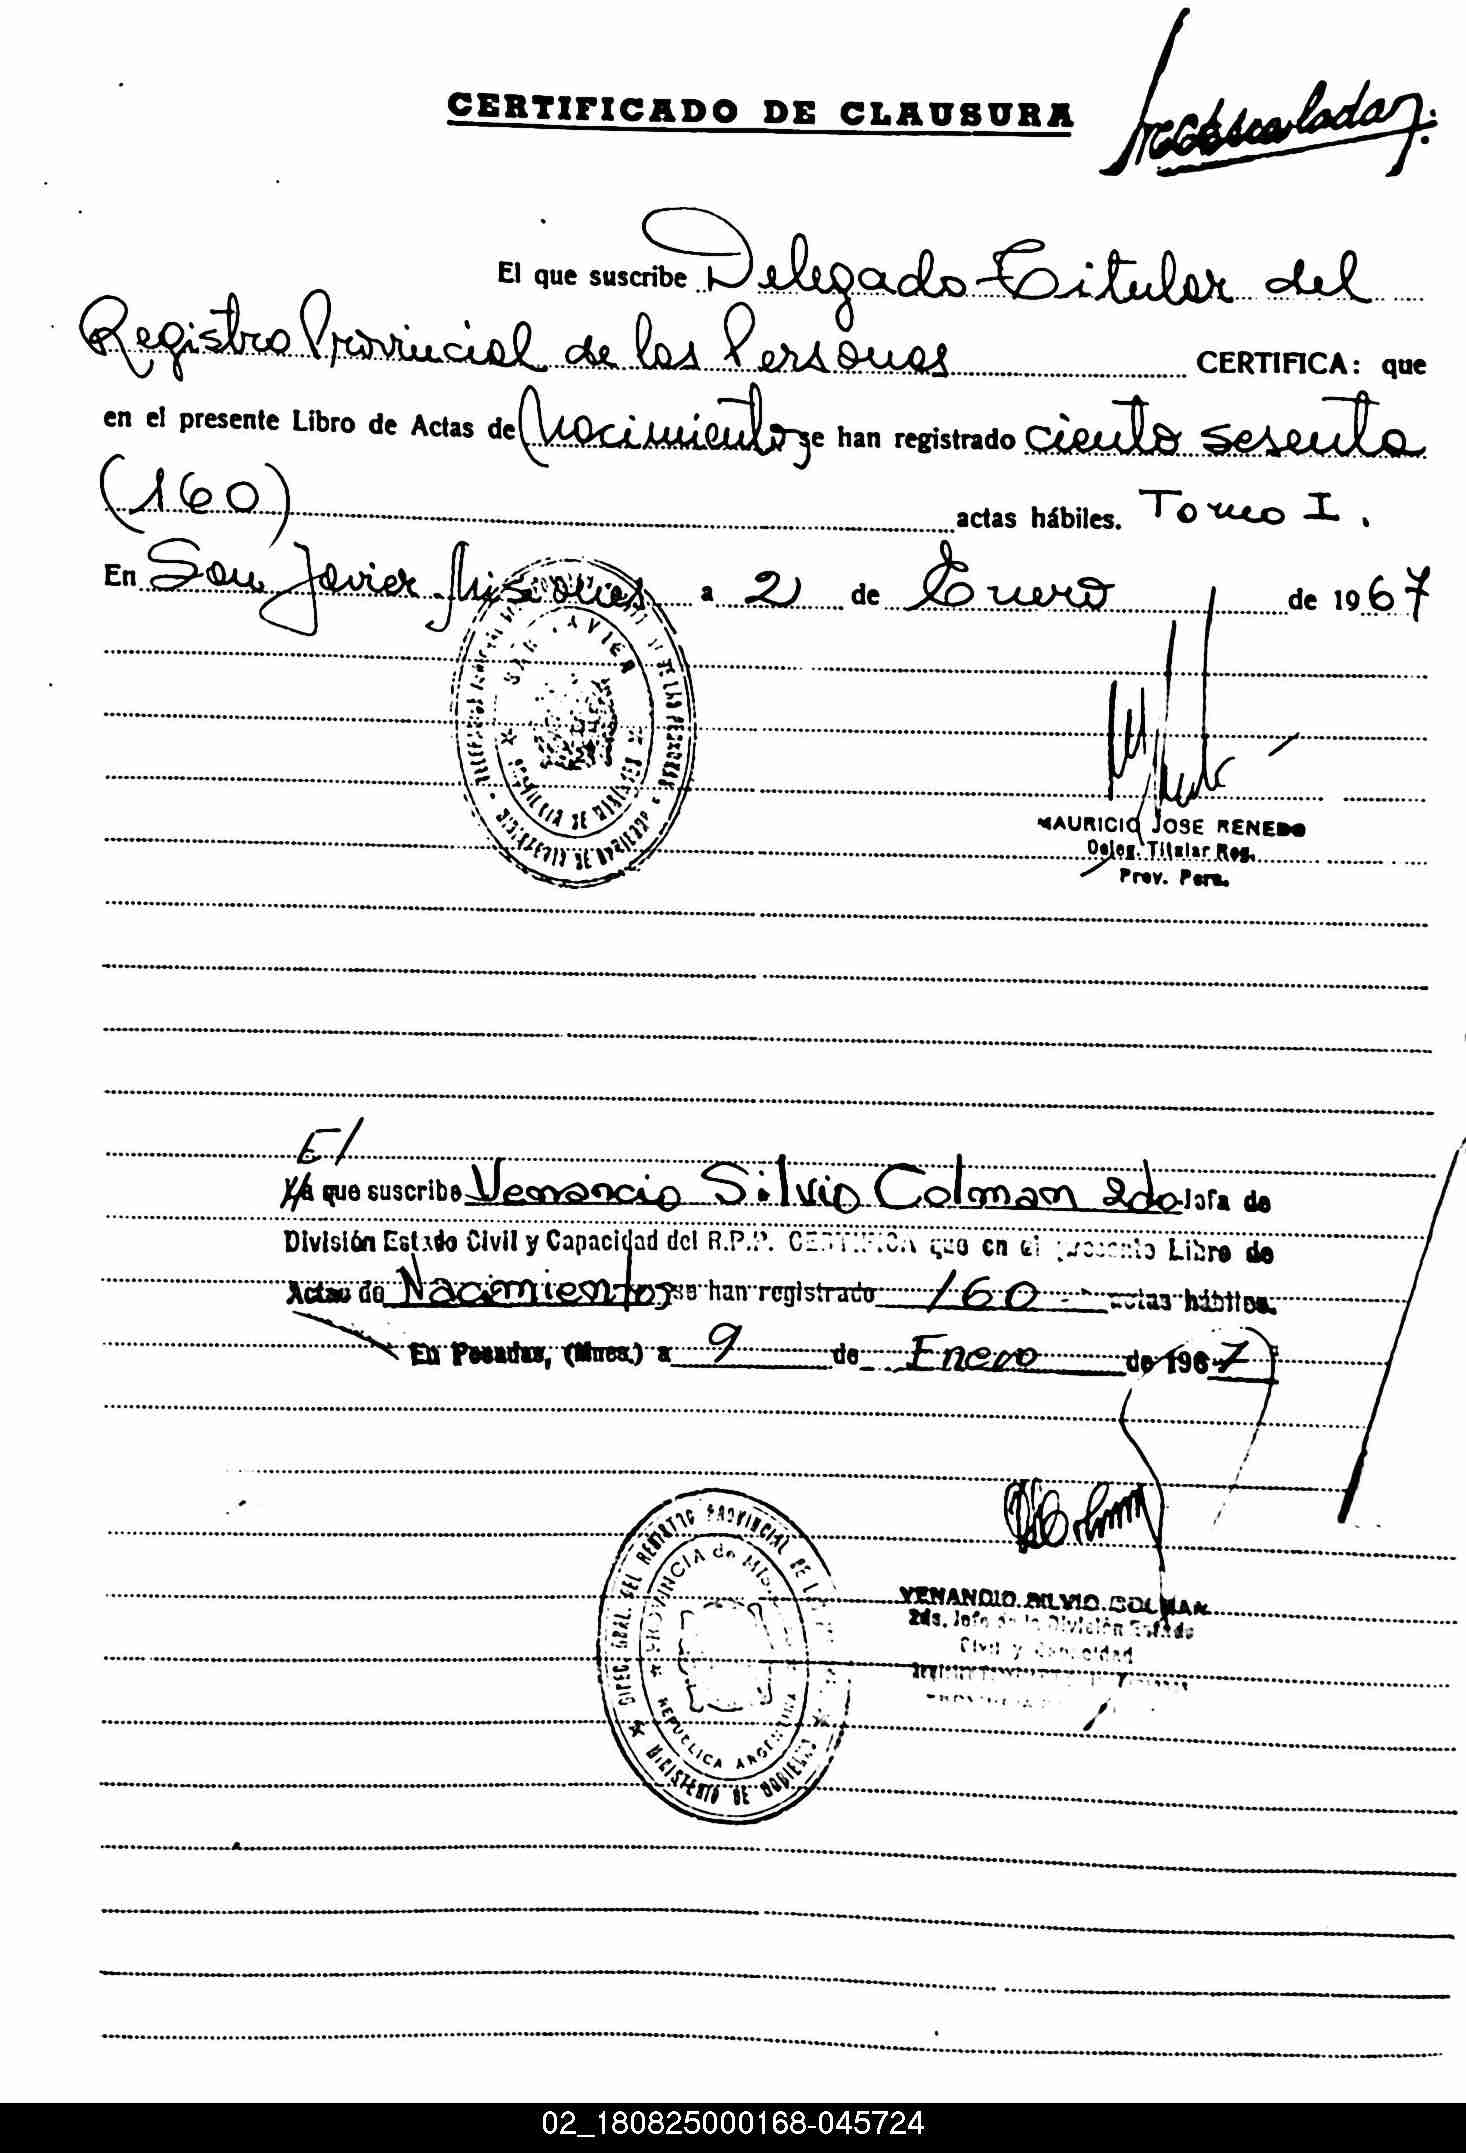 CERTIFICADO DE CLAUSURA
El que suscribe Delegado Titular del
Registro Provincial de las Personas CERTIFICA: que
en el presente Libro de Actas de Nacimientos se han registrado ciento sesenta
(160) actas hábiles. Tomo I.
En San Javier Misiones a 2 de Enero de 1967
SAN JAVIER
PROVINCIA DE MISIONES
MINISTERIO DE GOBIERNO
MAURICIO JOSE RENEDO
Deleg. Titular Reg.
Prov. Pers.
El
La que suscribe Venancio Silvio Colman 2do Jefa de
División Estado Civil y Capacidad del R.P.P. CERTIFICA que en el presente Libro de
Actas de Nacimientos se han registrado 160 actas hábiles.
En Posadas, (Mnes.) a 9 de Enero de 1967
DIREC. GRAL. DEL REGISTRO PROVINCIAL DE LAS
PROVINCIA de MISIONES
REPUBLICA ARGENTINA
MINISTERIO DE GOBIERNO
VENANCIO SILVIO COLMAN
2do. Jefe de la División Estado
Civil y Capacidad
02_180825000168-045724